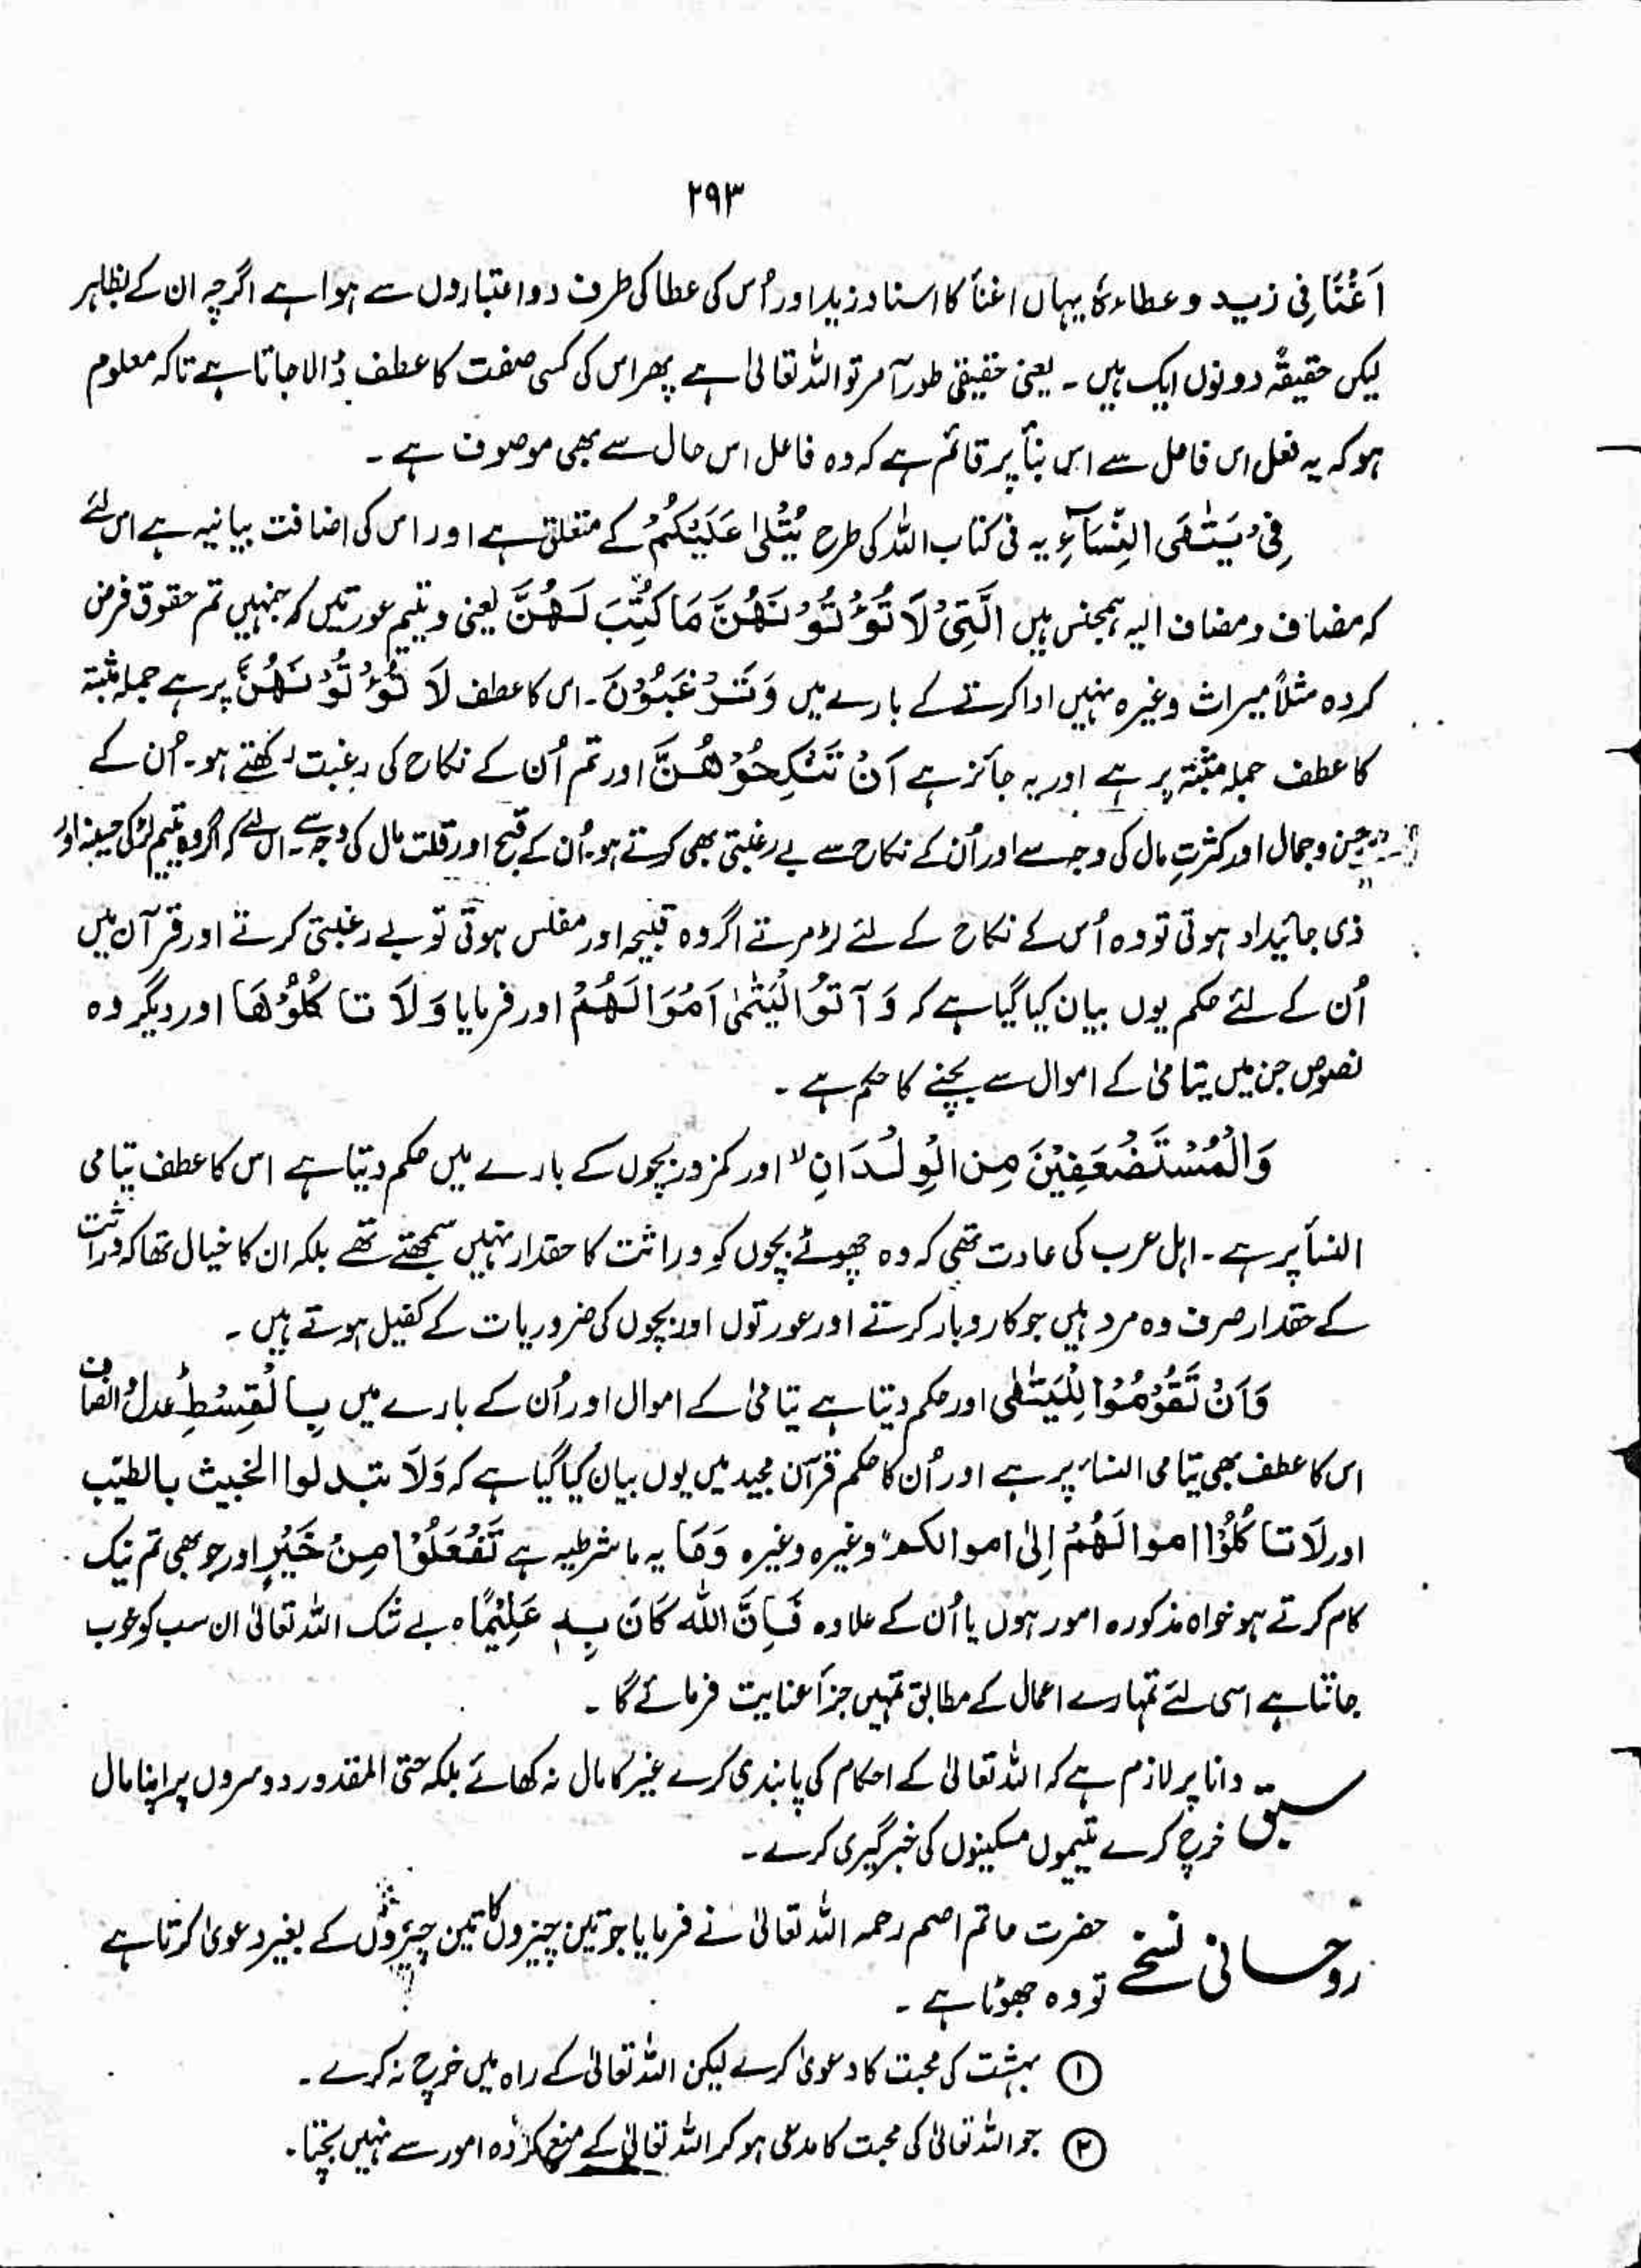 ۲۹۳
اَغْنَانِی زید و عطاءہٗ یہاں اغنأ کا اسناد زید اور اُس کی عطا کی طرف دو اعتباروں سے ہوا ہے اگرچہ ان کے بظاہر
لیکن حقیقۃً دونوں ایک ہیں ۔ یعنی حقیقی طور آمر تو اللہ تعالیٰ ہے پھر اس کی کسی صفت کا عطف ڈالا جاتا ہے تاکہ معلوم
ہو کہ یہ فعل اس فاعل سے اس بنأ پر قائم ہے کہ وہ فاعل اس حال سے بھی موصوف ہے ۔
فِیْ یَتٰمَی النِّسَآءِ یہ فی کتاب اللہ کی طرح یُتْلیٰ عَلَیْکُمْ کے متعلق ہے اور اس کی اضافت بیانیہ ہے اس لئے
کہ مضاف و مضاف الیہ ہمجنس ہیں الّٰتِیْ لَا تُؤْتُوْنَھُنَّ مَا کُتِبَ لَھُنَّ یعنی و یتیم عورتیں کہ جنہیں تم حقوق فرض
کردہ مثلاً میراث وغیرہ نہیں ادا کرتے کے بارے میں وَتَرْغَبُوْنَ ۔ اس کا عطف لَا تُؤْتُوْنَھُنَّ پر ہے جملہ مثبتہ
کا عطف جملہ مثبتہ پر ہے اور یہ جائز ہے اَنْ تَنْکِحُوْھُنَّ اور تم اُن کے نکاح کی رغبت رکھتے ہو ۔ اُن کے
حسن و جمال اور کثرتِ مال کی وجہ سے اور اُن کے نکاح سے بے رغبتی بھی کرتے ہو اُن کے قبح اور قلت مال کی وجہ سے ۔ اس لئے کہ اگر وہ یتیم لڑکی حسینہ اور
ذی جائیداد ہوتی تو وہ اُس کے نکاح کے لئے لڑ مرتے اگر وہ قبیحہ اور مفلس ہوتی تو بے رغبتی کرتے اور قرآن میں
اُن کے لئے حکم یوں بیان کیا گیا ہے کہ وَآتُوا الْیَتٰمٰی اَمْوَالَھُمْ اور فرمایا وَلَا تَاکُلُوْھَا اور دیگر وہ
نصوص جن میں یتامیٰ کے اموال سے بچنے کا حکم ہے ۔
وَالْمُسْتَضْعَفِیْنَ مِنَ الْوِلْدَانِ ۙ اور کمزور بچوں کے بارے میں حکم دیتا ہے اس کا عطف یتامی
النسأ پر ہے ۔ اہل عرب کی عادت تھی کہ وہ چھوٹے بچوں کو وراثت کا حقدار نہیں سمجھتے تھے بلکہ ان کا خیال تھا کہ وراثت
کے حقدار صرف وہ مرد ہیں جو کاروبار کرتے اور عورتوں اور بچوں کی ضروریات کے کفیل ہوتے ہیں ۔
وَاَنْ تَقُوْمُوْا لِلْیَتٰمٰی اور حکم دیتا ہے یتامیٰ کے اموال اور اُن کے بارے میں بِالْقِسْطِ عدل و انصاف
اس کا عطف بھی یتامی النساء پر ہے اور اُن کا حکم قرآن مجید میں یوں بیان کیا گیا ہے کہ وَلَا تتبدلوا الخبیث بالطیّب
اور لَا تاکُلُوْا اموالَھُمْ اِلیٰ اموالکم" وغیرہ وغیرہ وَمَا یہ ما شرطیہ ہے تَفْعَلُوْا مِنْ خَیْرٍ اور جو بھی تم نیک
کام کرتے ہو خواہ مذکورہ امور ہوں یا اُن کے علاوہ فَاِنَّ اللّٰہَ کَانَ بِہٖ عَلِیْمًا ہ بے شک اللہ تعالیٰ ان سب کو خوب
جانتا ہے اسی لئے تمہارے اعمال کے مطابق تمہیں جزأ عنایت فرمائے گا ۔
سبق دانا پر لازم ہے کہ اللہ تعالیٰ کے احکام کی پابندی کرے غیر کا مال نہ کھائے بلکہ حتی المقدور دوسروں پر اپنا مال
خرچ کرے یتیموں مسکینوں کی خبر گیری کرے ۔
روحانی نسخے حضرت حاتم اصم رحمہ اللہ تعالیٰ نے فرمایا جو تین چیزوں کا تین چیزوں کے بغیر دعویٰ کرتا ہے
تو وہ جھوٹا ہے ۔
① بہشت کی محبت کا دعویٰ کرے لیکن اللہ تعالیٰ کے راہ میں خرچ نہ کرے ۔
② جو اللہ تعالیٰ کی محبت کا مدعی ہو کر اللہ تعالیٰ کے منع کردہ امور سے نہیں بچتا ۔